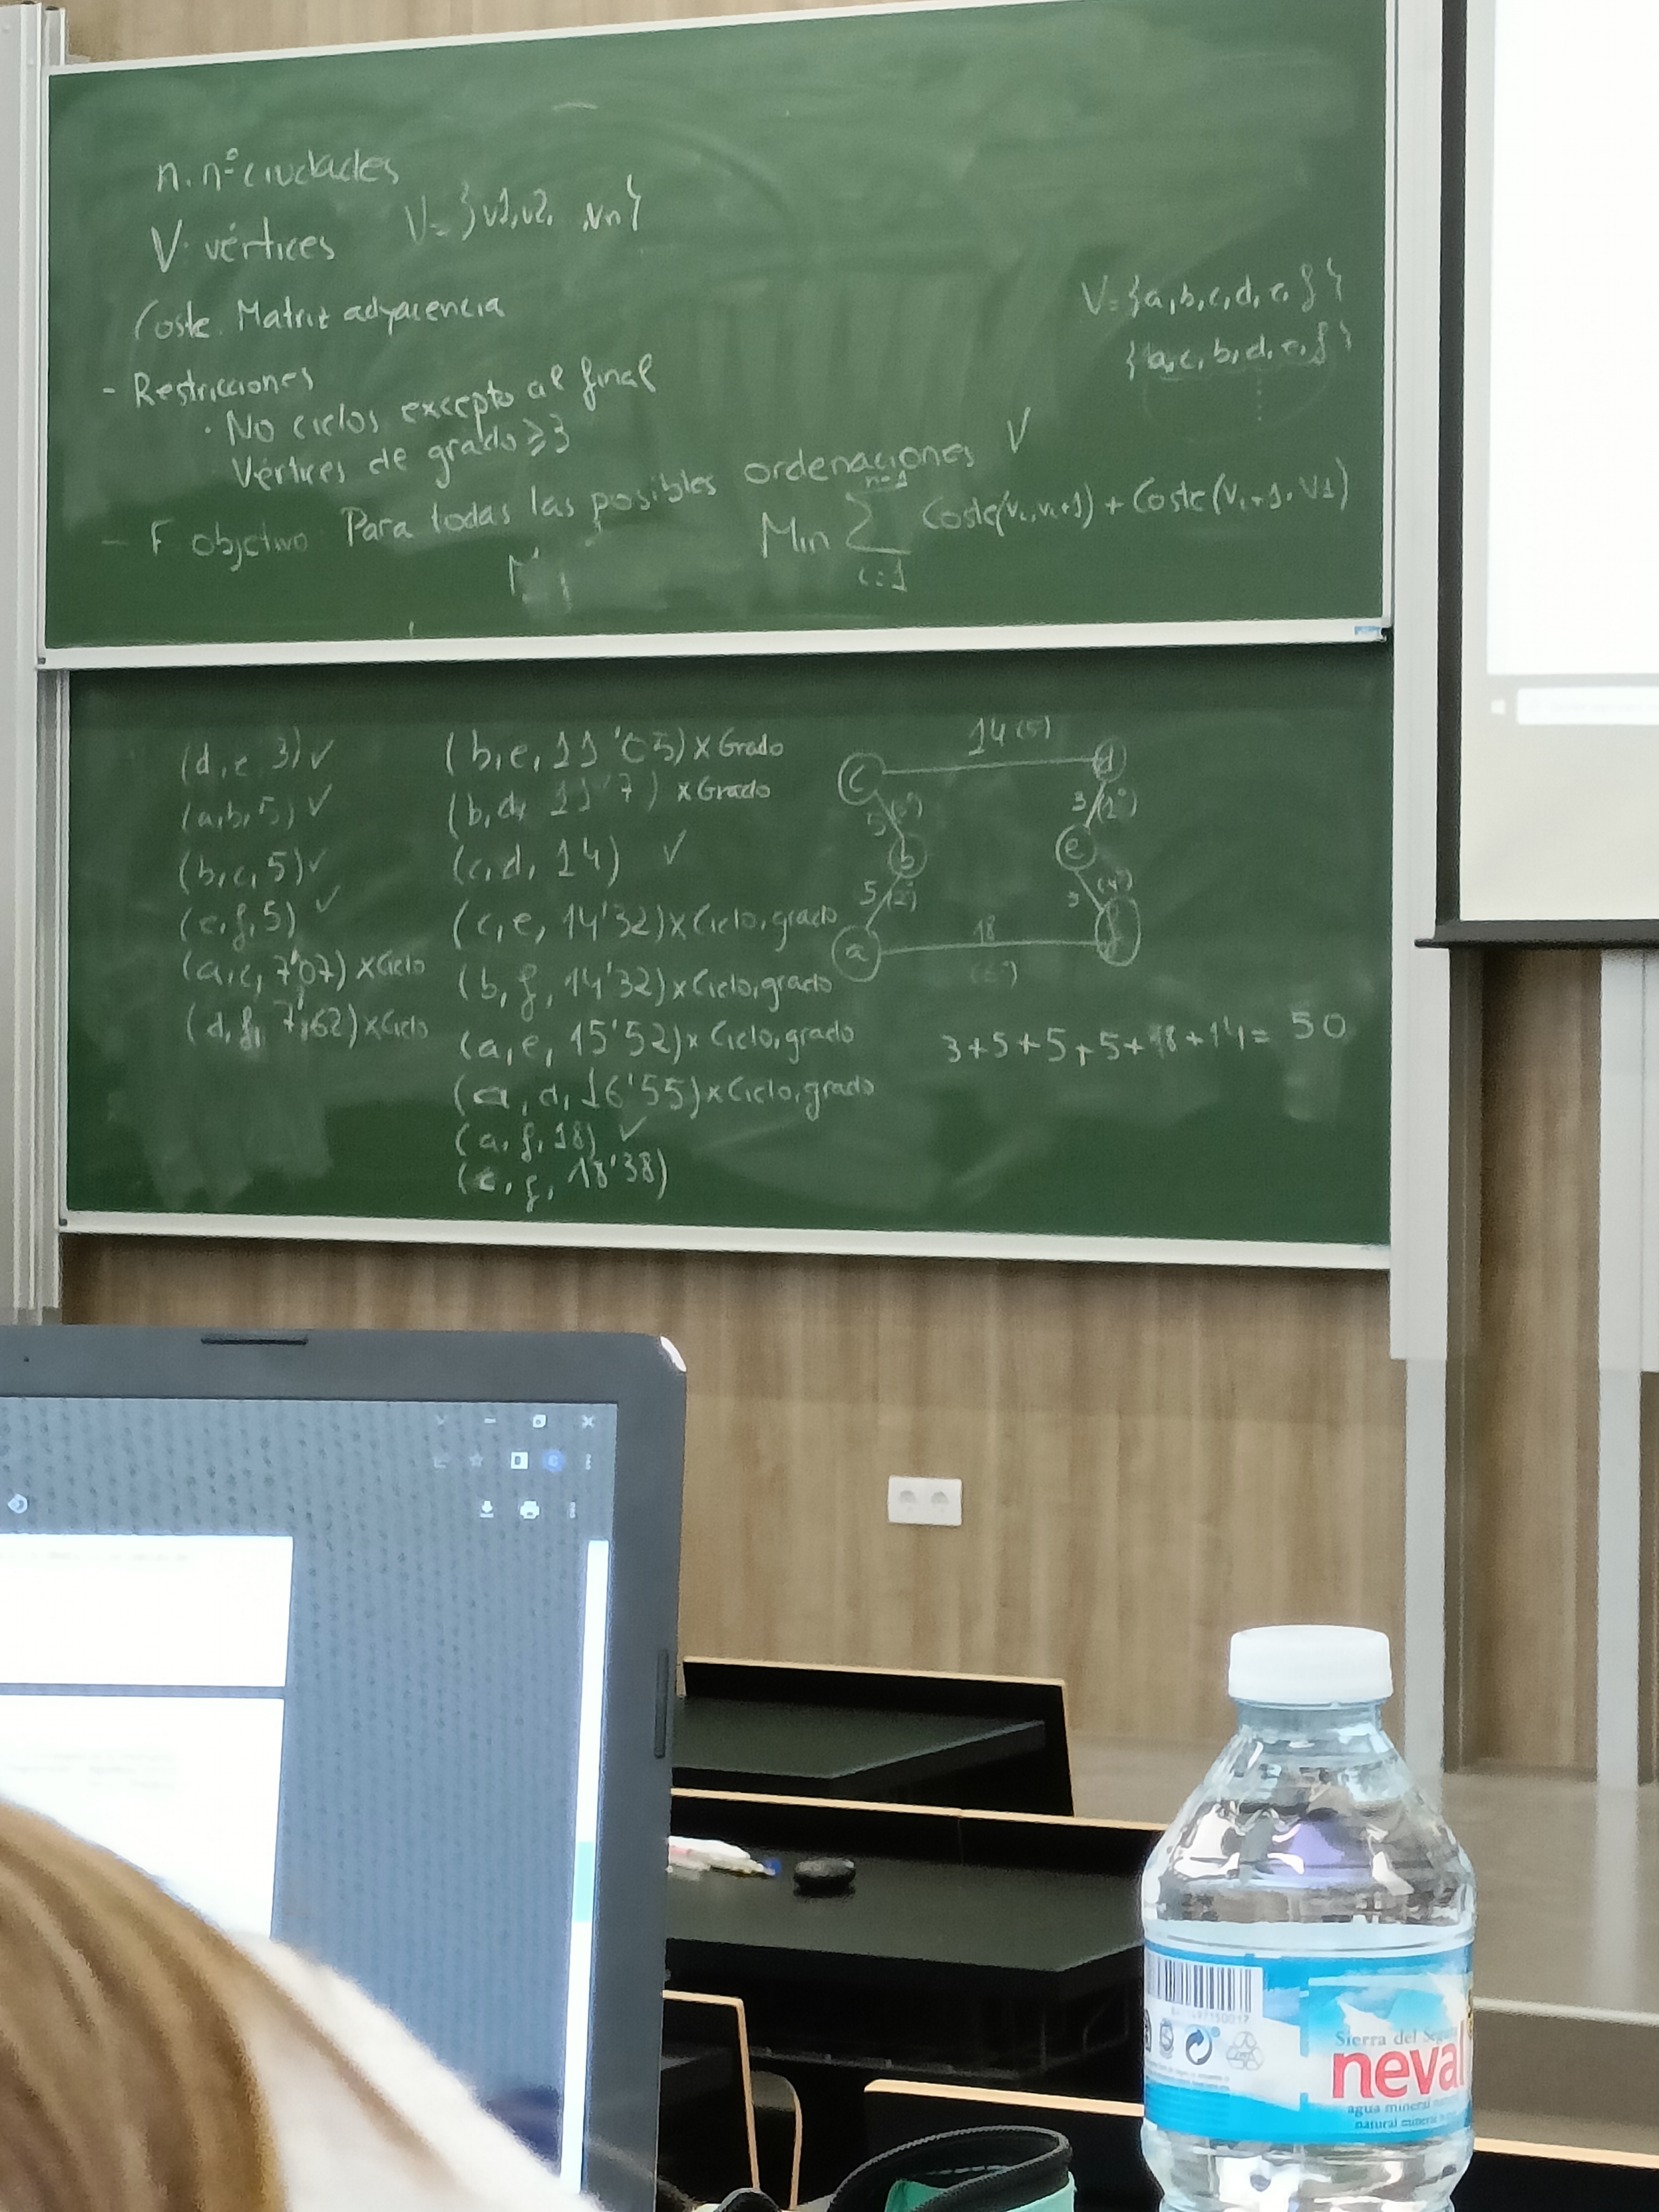 n. nº ciudades
V. vértices V = }v1, v2, , vn}
Coste. Matriz adyacencia
- Restricciones
· No ciclos excepto al final
Vértices de grado ≥ 3
- F objetivo Para todas las posibles ordenaciones V
Min ∑ Coste(vi, vi+1) + Coste(vi+1, v1)
n-1
i=1
V = {a, b, c, d, e, f}
{a, c, b, d, e, f}
(d, e, 3) ✓
(a, b, 5) ✓
(b, c, 5) ✓
(e, f, 5) ✓
(a, c, 7'07) x Ciclo
(d, f, 7'62) x Ciclo
(b, e, 11'05) x Grado
(b, d, 11'7) x Grado
(c, d, 14) ✓
(c, e, 14'32) x Ciclo, grado
(b, f, 14'32) x Ciclo, grado
(a, e, 15'52) x Ciclo, grado
(a, d, 16'55) x Ciclo, grado
(a, f, 18) ✓
(c, f, 18'38)
14 (5)
c d
5 3 (1º)
b e
5 (2º) (4º)
a 18 f
(6º)
3+5+5+5+18+14= 50
Sierra del
neval
agua mineral
natural mineral